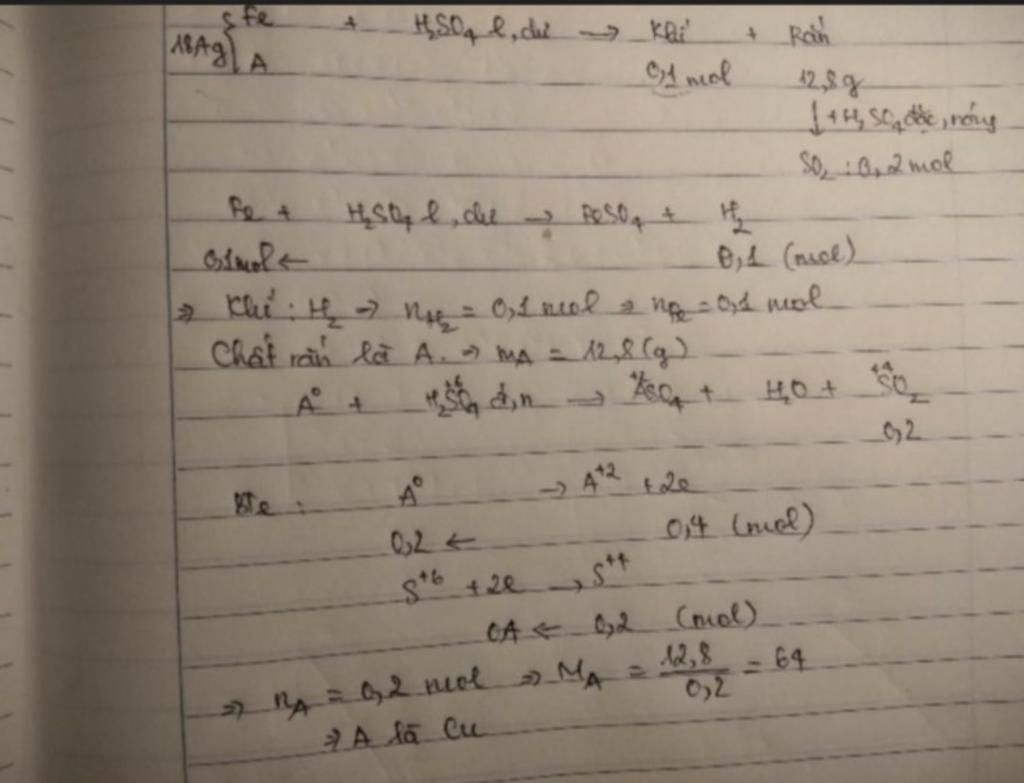 18,4g { Fe + H₂SO₄ l, dư → Khí + Rắn
A 0,1 mol 12,8g
↓ + H₂SO₄ đặc, nóng
SO₂ : 0,2 mol
Fe + H₂SO₄ l, dư → FeSO₄ + H₂
0,1 mol ← 0,1 (mol)
⇒ Khí : H₂ → nH₂ = 0,1 mol ⇒ nFe = 0,1 mol
Chất rắn là A. ⇒ mA = 12,8 (g)
A⁰ + H₂S⁺⁶O₄ đ,n → A⁺²SO₄ + H₂O + S⁺⁴O₂
0,2
BTe : A⁰ → A⁺² + 2e
0,2 ← 0,4 (mol)
S⁺⁶ + 2e → S⁺⁴
0,4 ← 0,2 (mol)
⇒ nA = 0,2 mol ⇒ MA = 12,8/0,2 = 64
⇒ A là Cu